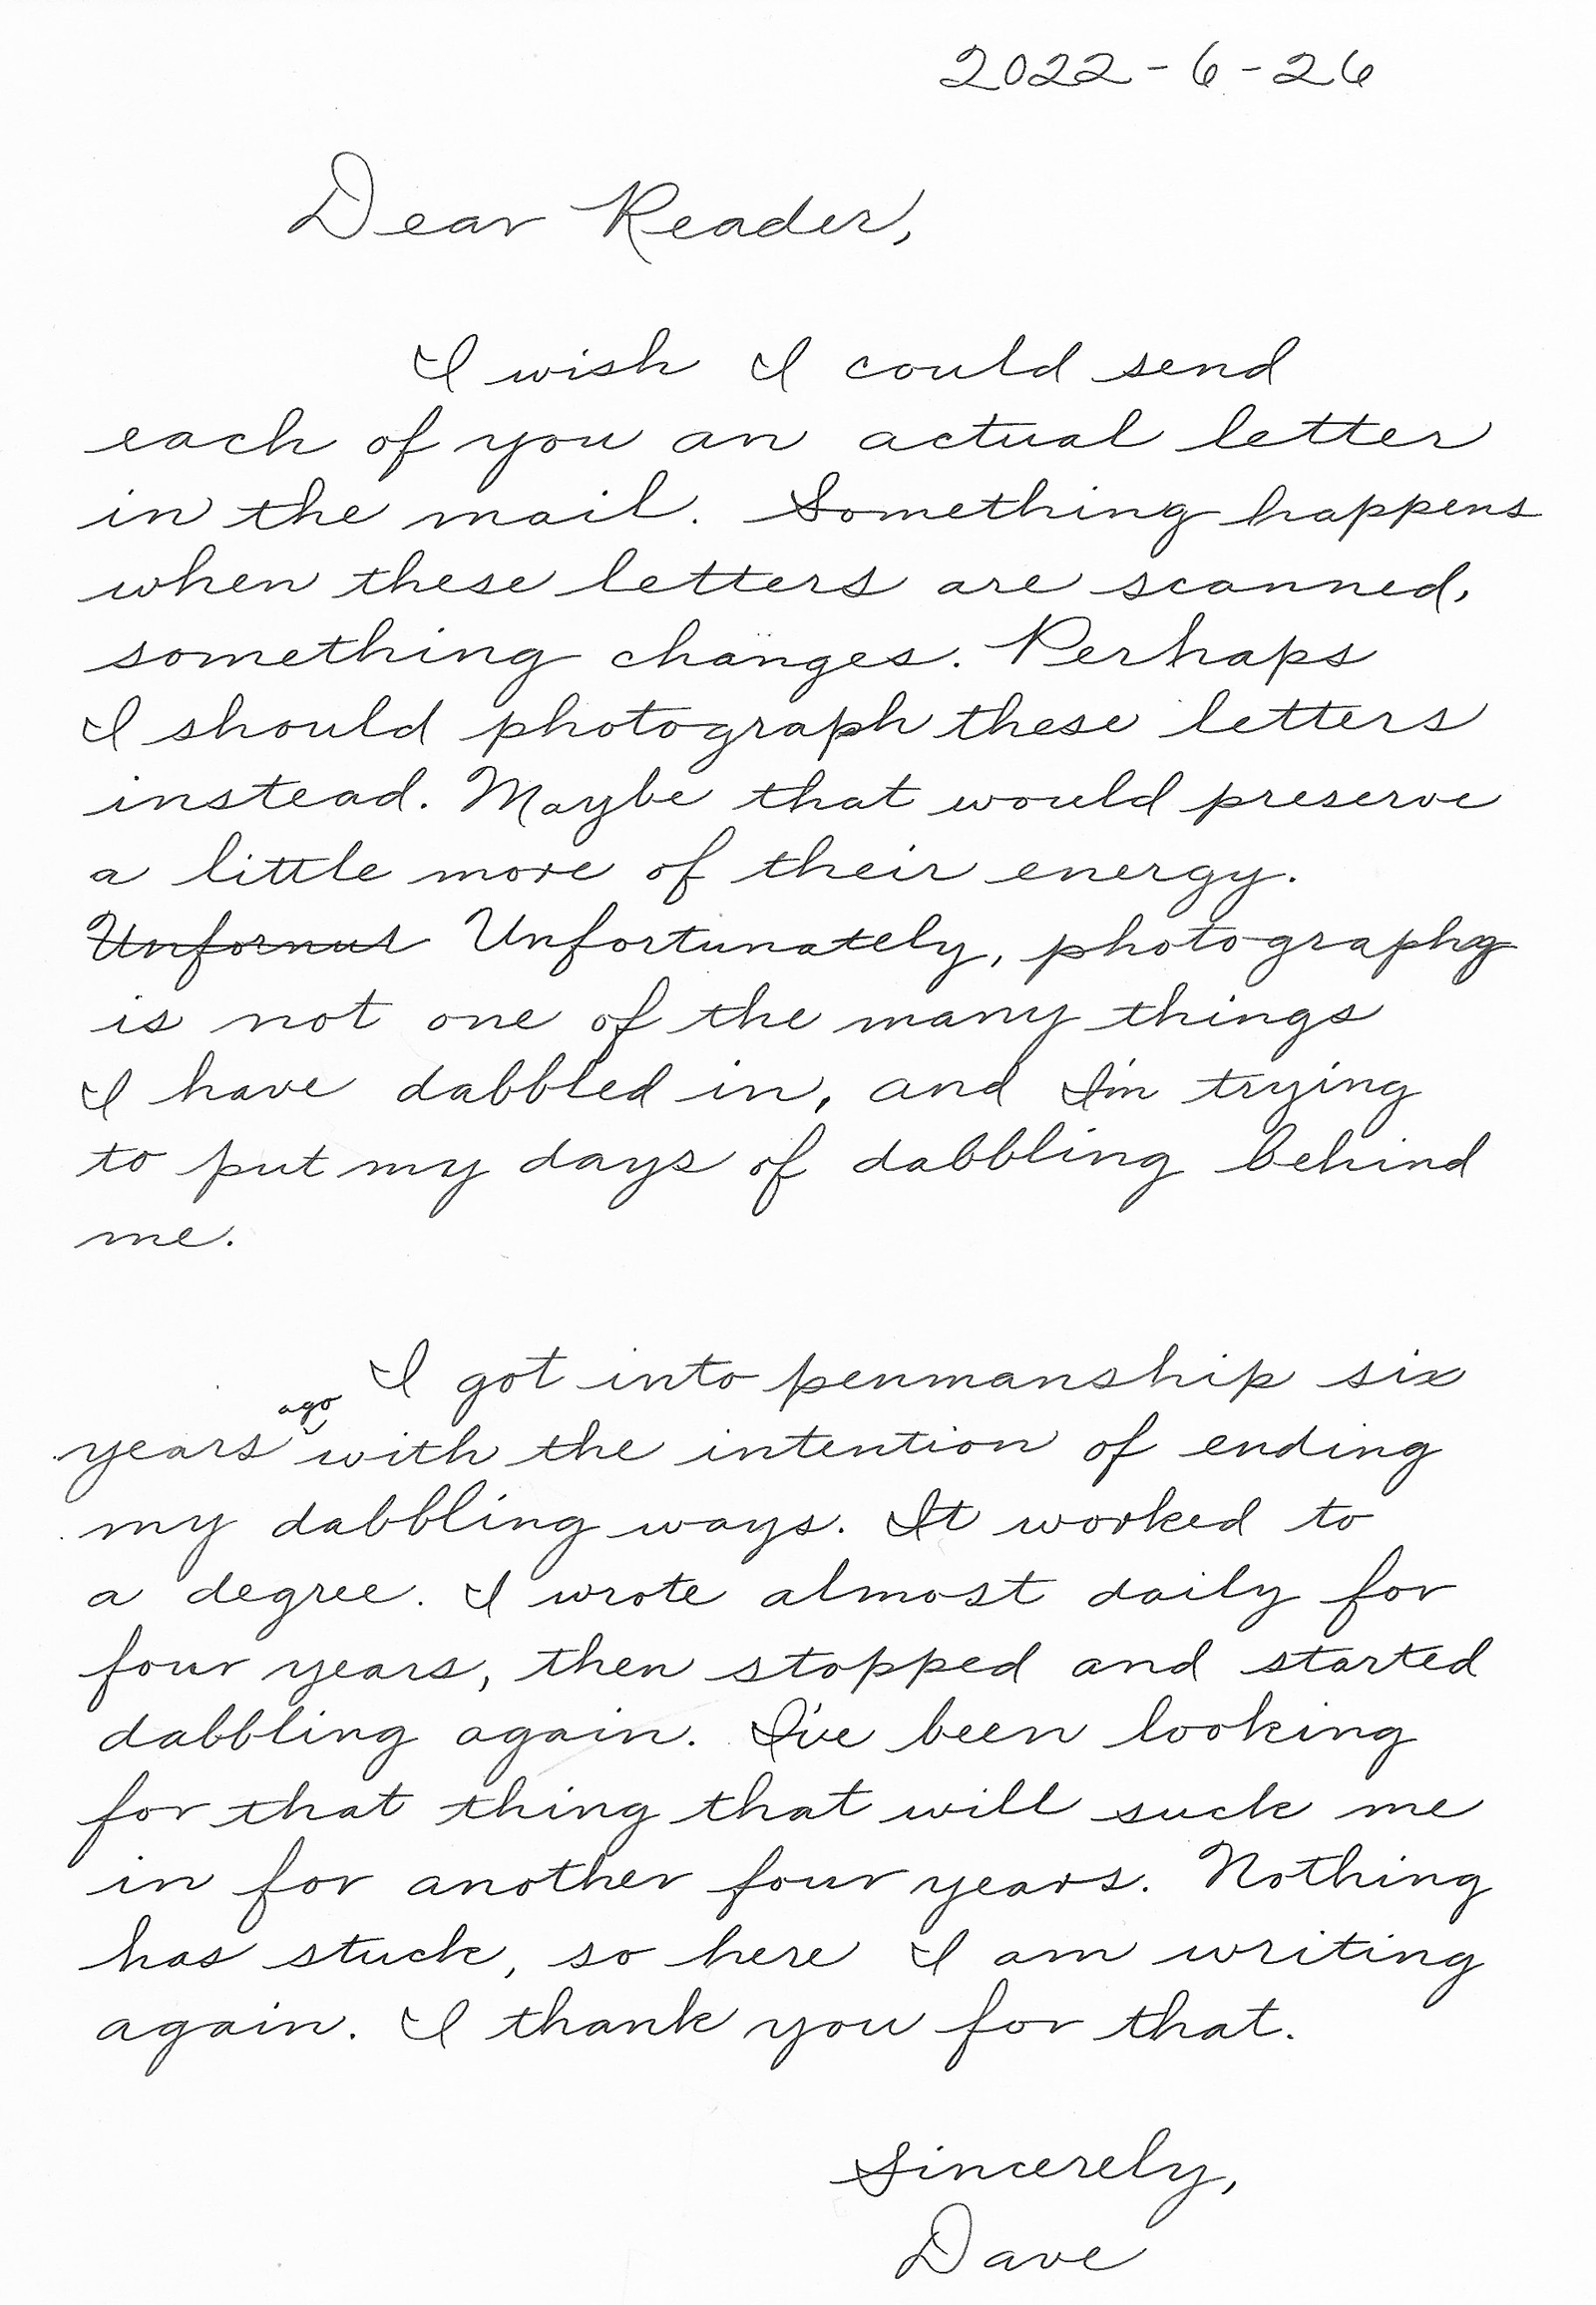 2022-6-26
Dear Reader,
I wish I could send
each of you an actual letter
in the mail. Something happens
when these letters are scanned,
something changes. Perhaps
I should photograph these letters
instead. Maybe that would preserve
a little more of their energy.
Unfornut Unfortunately, photography
is not one of the many things
I have dabbled in, and I'm trying
to put my days of dabbling behind
me.
I got into penmanship six
years ago with the intention of ending
my dabbling ways. It worked to
a degree. I wrote almost daily for
four years, then stopped and started
dabbling again. I've been looking
for that thing that will suck me
in for another four years. Nothing
has stuck, so here I am writing
again. I thank you for that.
Sincerely,
Dave